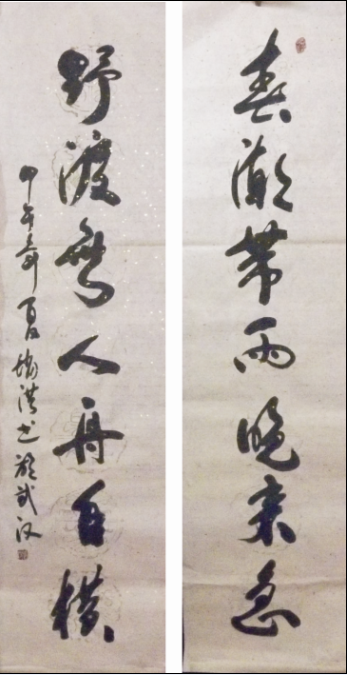 春潮带雨晚来急
野渡无人舟自横
甲午年夏日 洪书于武汉